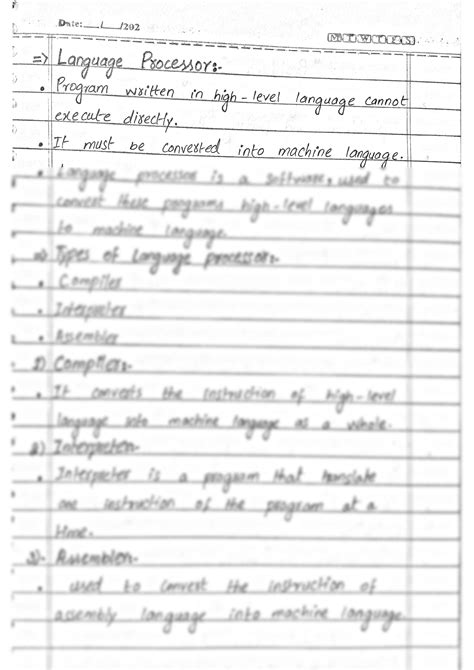 Date: __/__/202
M T W T F S
=> Language Processor:-
• Program written in high-level language cannot
execute directly.
• It must be converted into machine language.
• Language processor is a software, used to
convert these programs high-level languages
to machine language.
=> Types of Language processor:-
• Compiler
• Interpreter
• Assembler
1) Compiler:-
• It converts the instruction of high-level
language into machine language as a whole.
2) Interpreter:-
• Interpreter is a program that translate
one instruction of the program at a
time.
3)- Assembler:-
• used to convert the instruction of
assembly language into machine language.